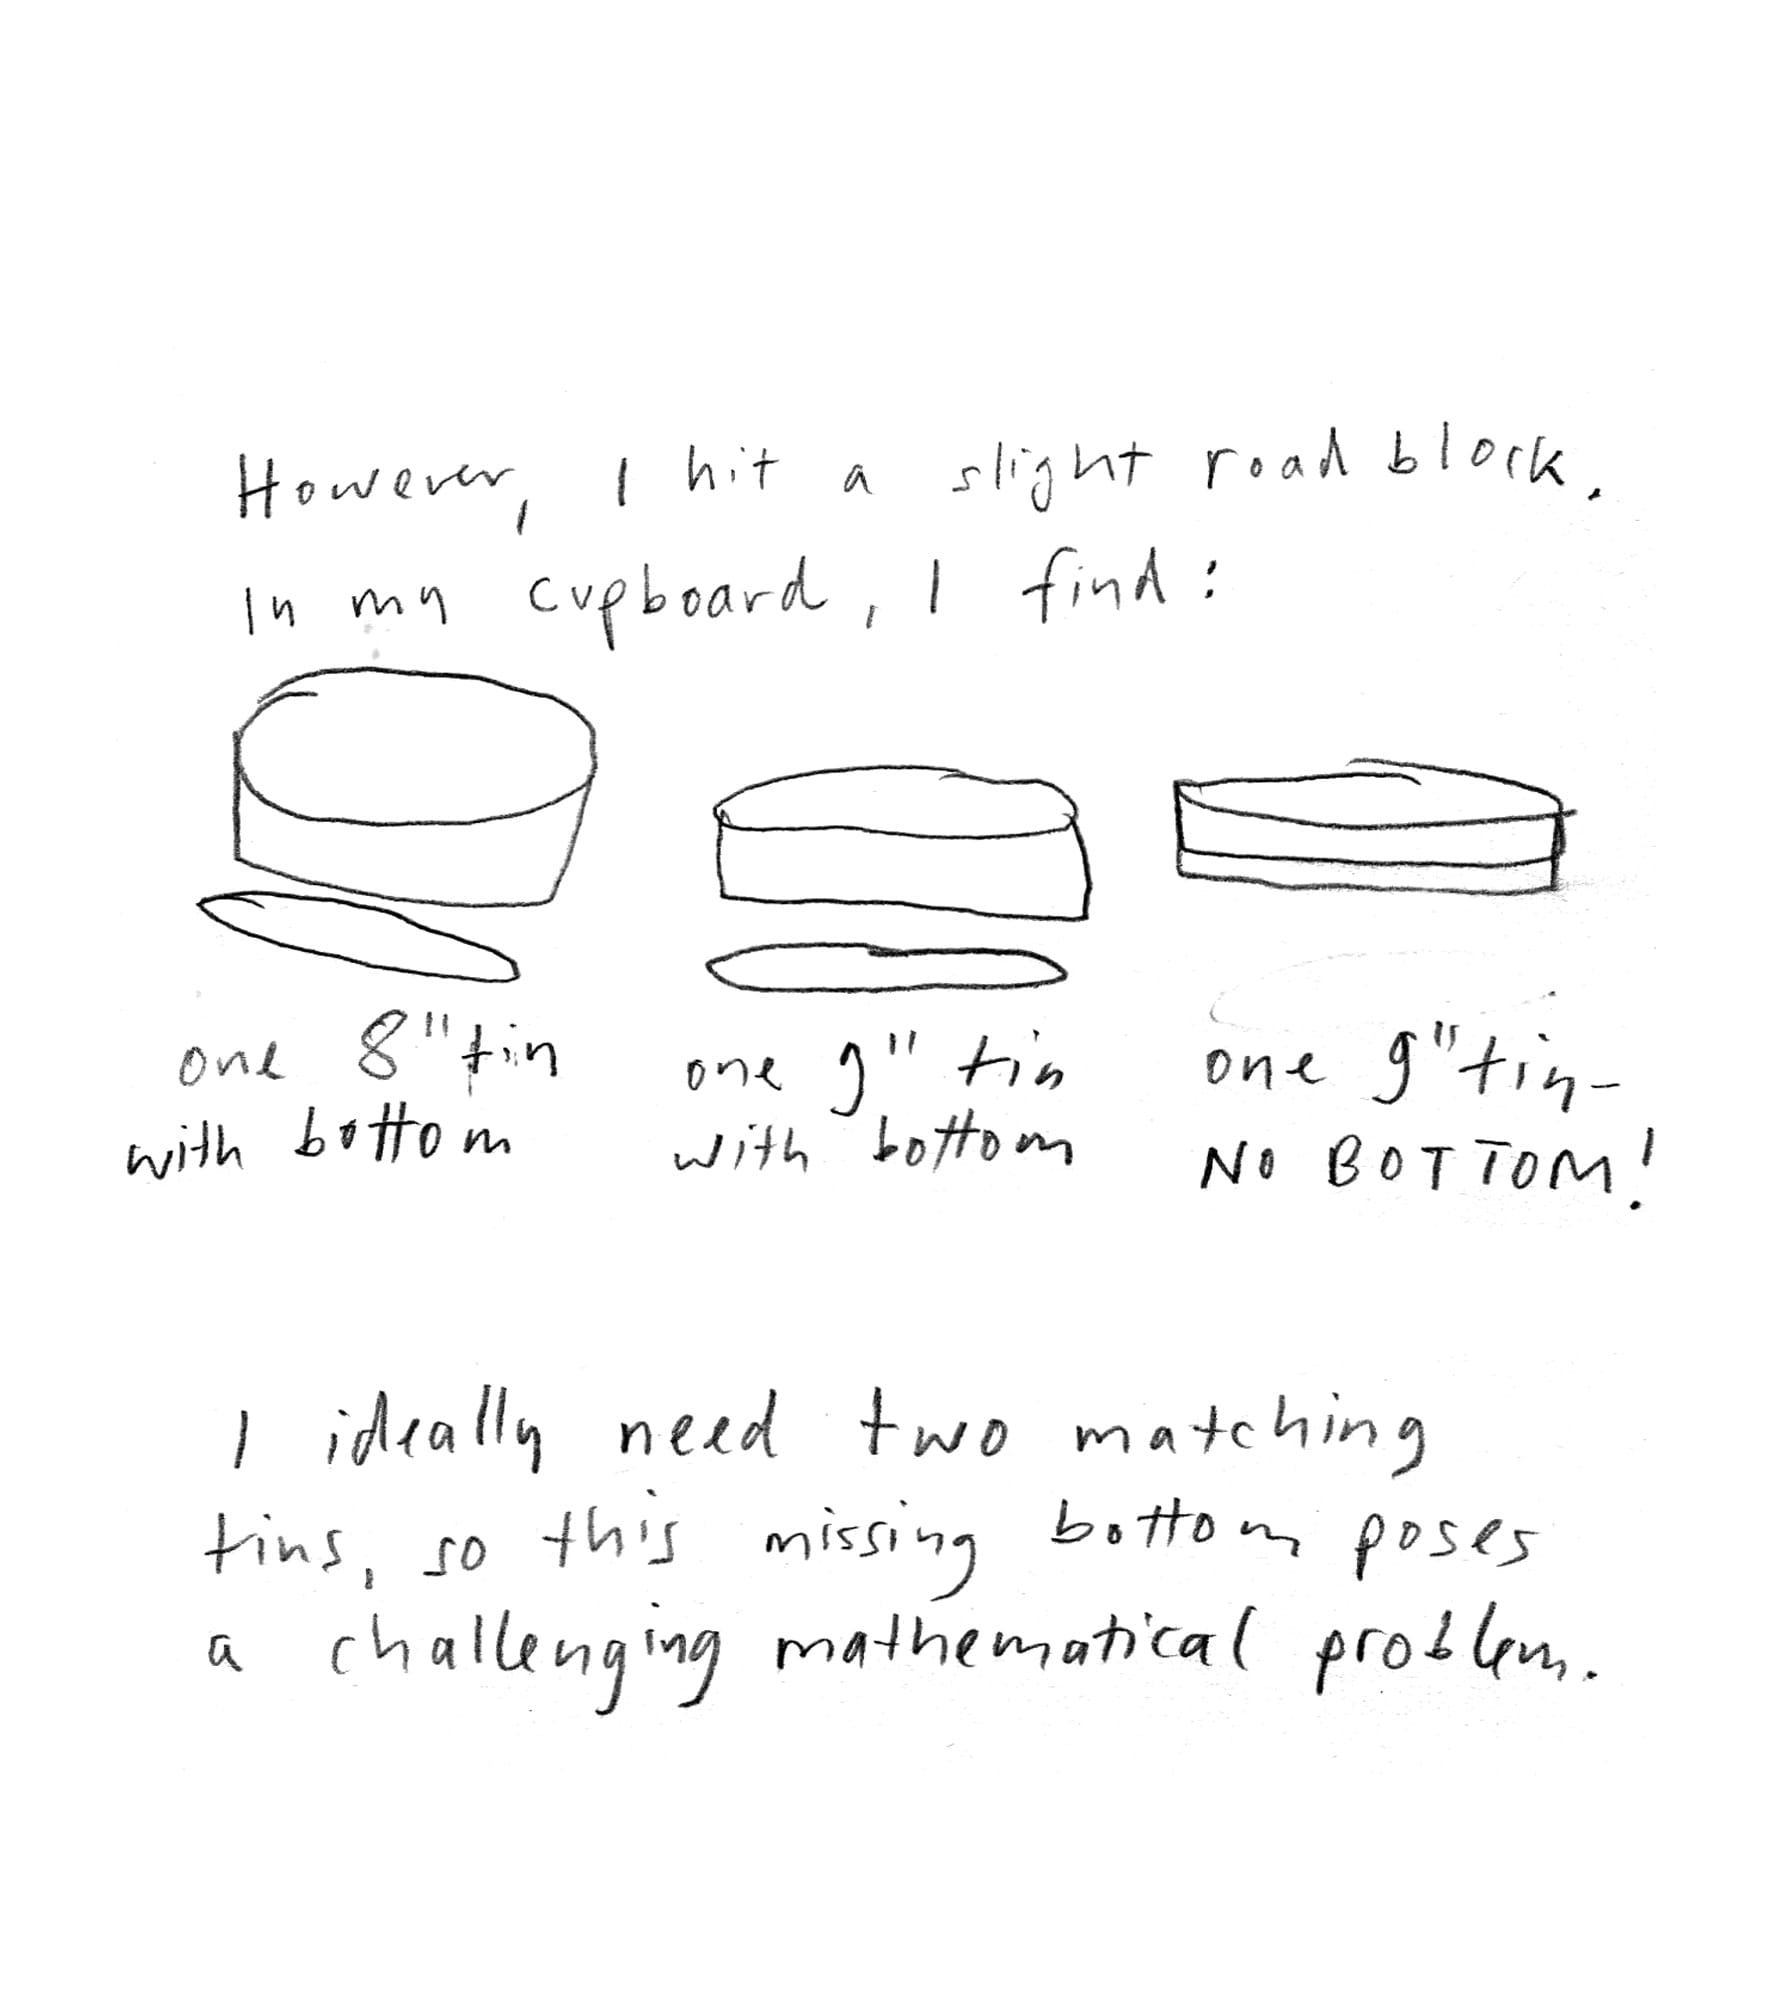 However, I hit a slight road block.
In my cupboard, I find:
one 8" tin
with bottom
one 9" tin
with bottom
one 9" tin-
NO BOTTOM!
I ideally need two matching
tins, so this missing bottom poses
a challenging mathematical problem.